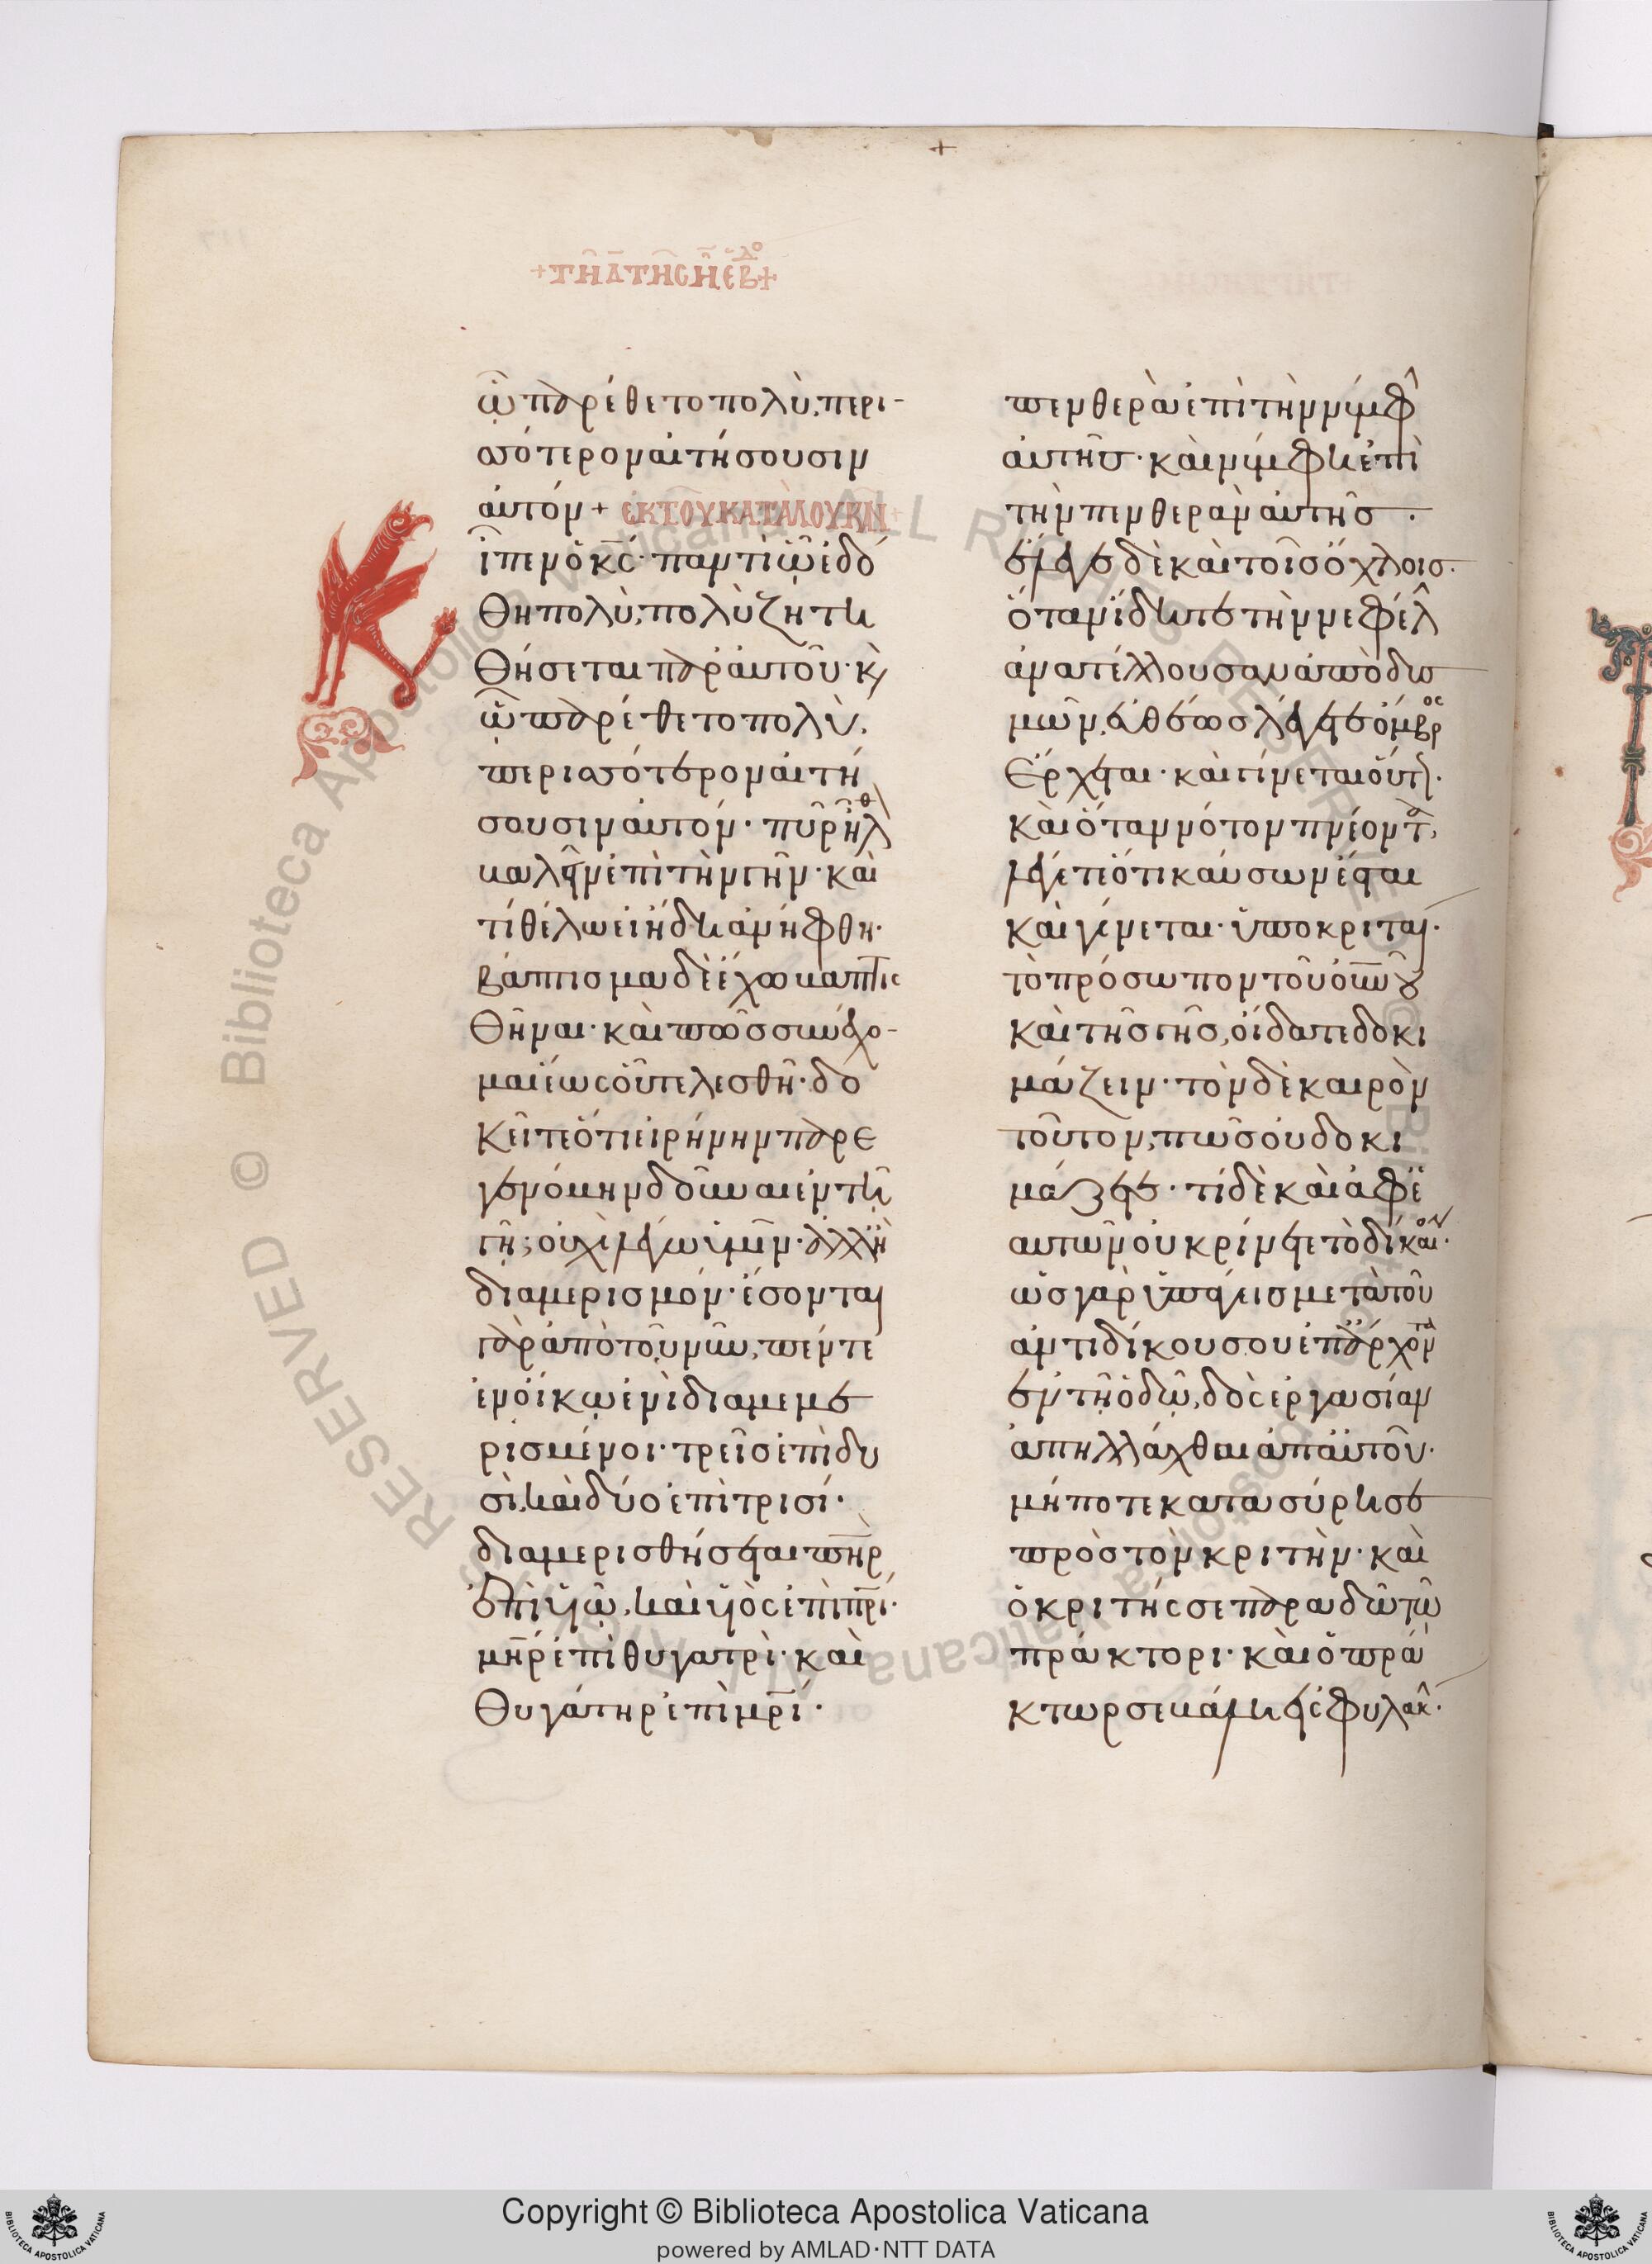 +ΤῌΔΤΗϹΗ̄ΕΒΔΟ+
ὧ παρέθετο πολὺ, περι-
σσότερον αἰτήσουσιν
αὐτόν + ΕΚ ΤΟΥ ΚΑΤΑ ΛΟΥΚΑΝ +
ἶπεν ὁ κς· παντὶ ᾧ ἐδό
θη πολὺ, πολὺ ζητη
θήσεται παρ' αὐτοῦ· κ
ᾧ παρέθετο πολὺ,
περισσότερον αἰτή
σουσιν αὐτόν· πῦρ ἦλθ
βαλεῖν ἐπὶ τὴν γῆν· καὶ
τί θέλω εἰ ἤδη ἀνήφθη·
βάπτισμα δὲ ἔχω βαπτις
θῆναι· καὶ πῶς συνέχο-
μαι ἕως οὗ τελεσθῆ· δο
κεῖτε ὅτι εἰρήνην παρε
γενόμην δοῦναι ἐν τῆ
γῆ; οὐχὶ λέγω ὑμῖν· ἀλλ' ἢ
διαμερισμόν· ἔσονται
γὰρ ἀπὸ τοῦ νῦν, πέντε
ἐν οἴκω ἑνὶ διαμεμε
ρισμένοι· τρεῖς ἐπὶ δυ
σὶ, καὶ δύο ἐπὶ τρισί·
διαμερισθήσεται πηρ
ἐπὶ υἱῶ, καὶ υἱὸς ἐπὶ πρί·
μηρ ἐπὶ θυγατρὶ· καὶ
θυγάτηρ ἐπὶ μρί·
πενθερὰ ἐπὶ τὴν νύμφη
αὐτῆς· καὶ νύμφη ἐπὶ
τὴν πενθερὰν αὐτῆς·
ἔλεγε δὲ καὶ τοῖς ὄχλοις·
ὅταν ἴδητε τὴν νεφέλ
ἀνατέλλουσαν ἀπὸ δυσ
μῶν, εὐθέως λέγετε ὄμβρος
ἔρχεται· καὶ γίνεται οὕτ·
καὶ ὅταν νότον πνέοντα,
λέγετε ὅτι καύσων ἔσται
καὶ γίνεται· ὑποκριταί·
τὸ πρόσωπον τοῦ οὐνου
καὶ τῆς γῆς, οἴδατε δοκι
μάζειν· τὸν δὲ καιρὸν
τοῦτον, πῶς οὐ δοκι
μάζετε· τί δὲ καὶ ἀφ' ἑ
αυτῶν οὐ κρίνετε τὸ δίκαιον·
ὡς γὰρ ὑπάγεις μετὰ τοῦ
ἀντιδίκου σου ἐπ' ἄρχοντα
ἐν τῆ ὁδῶ, δὸς ἐργασίαν
ἀπηλλάχθαι ἀπ' αὐτοῦ·
μήποτε κατασύρη σε
πρὸς τὸν κριτὴν· καὶ
ὁ κριτής σε παραδῶ τῶ
πράκτορι· καὶ ὁ πρά
κτωρ σε βάλη εἰς φυλακ·
Copyright © Biblioteca Apostolica Vaticana
powered by AMLAD·NTT DATA